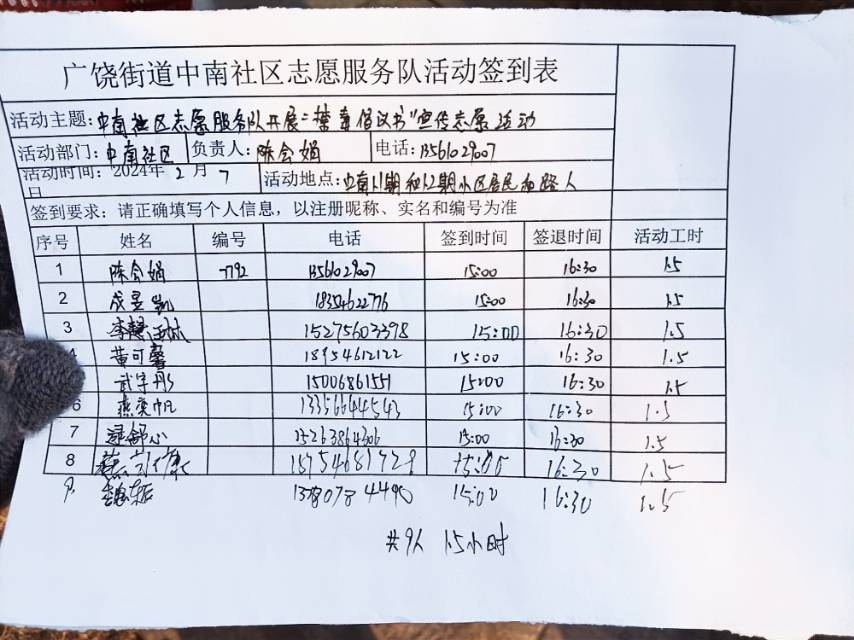 广饶街道中南社区志愿服务队活动签到表
活动主题:中南社区志愿服务队开展"禁毒倡议书"宣传志愿活动
活动部门:中南社区 负责人:陈会娟 电话:13561029007
活动时间:2024年 2月 7日 活动地点:中南11期和12期小区居民和路人
签到要求:请正确填写个人信息,以注册昵称、实名和编号为准
序号 姓名 编号 电话 签到时间 签退时间 活动工时
1 陈会娟 7792 13561029007 15:00 16:30 1.5
2 成昱凯 18354622776 15:00 16:30 1.5
3 15275603398 15:00 16:30 1.5
黄可馨 18954612122 15:00 16:30 1.5
武宇彤 15006861551 15:00 16:30 1.5
6 燕奕帆 13356644543 15:00 16:30 1.5
7 15263864306 15:00 16:30 1.5
8 15:00 16:30 1.5
9. 15:00 16:30 1.5
共9人 1.5小时